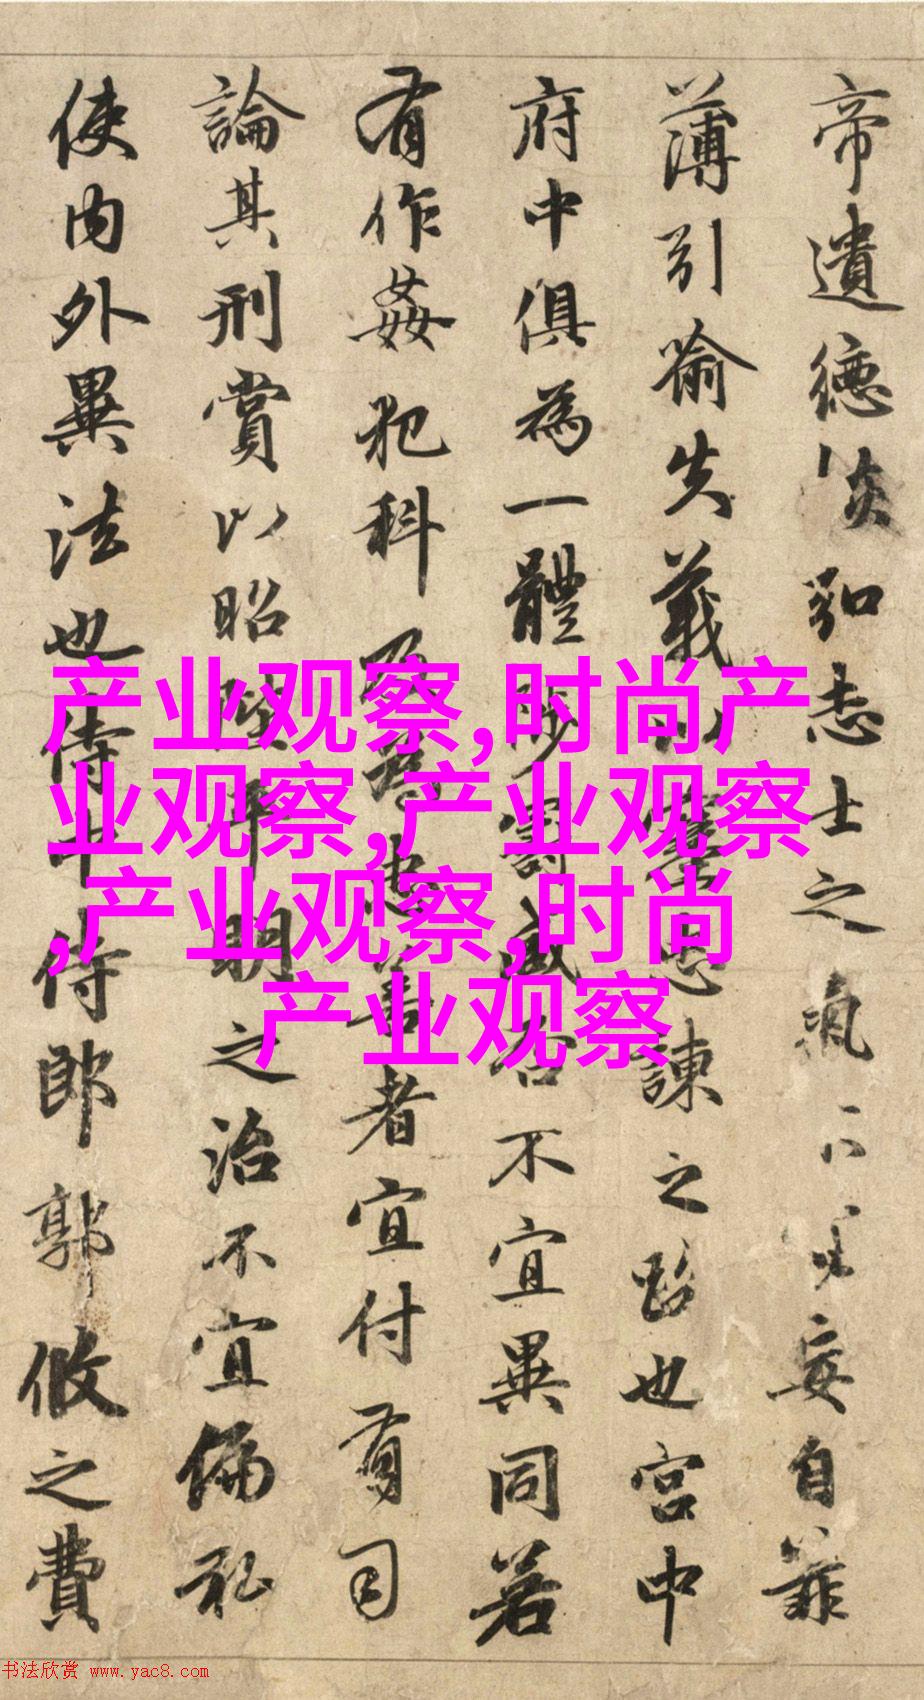 帝遺德恢弘志士之氣不宜妄自菲
薄引喻失義以塞忠諫之路也宮中
府中俱為一體陟罰臧否不宜異同若
有作姦犯科及為忠善者宜付有司
論其刑賞以昭陛平明之治不宜偏私
使內外異法也侍中侍郎郭攸之費
产业观察,时尚产
业观察,产业观察
,产业观察,时尚
产业观察
书法欣赏 www.yac8.com